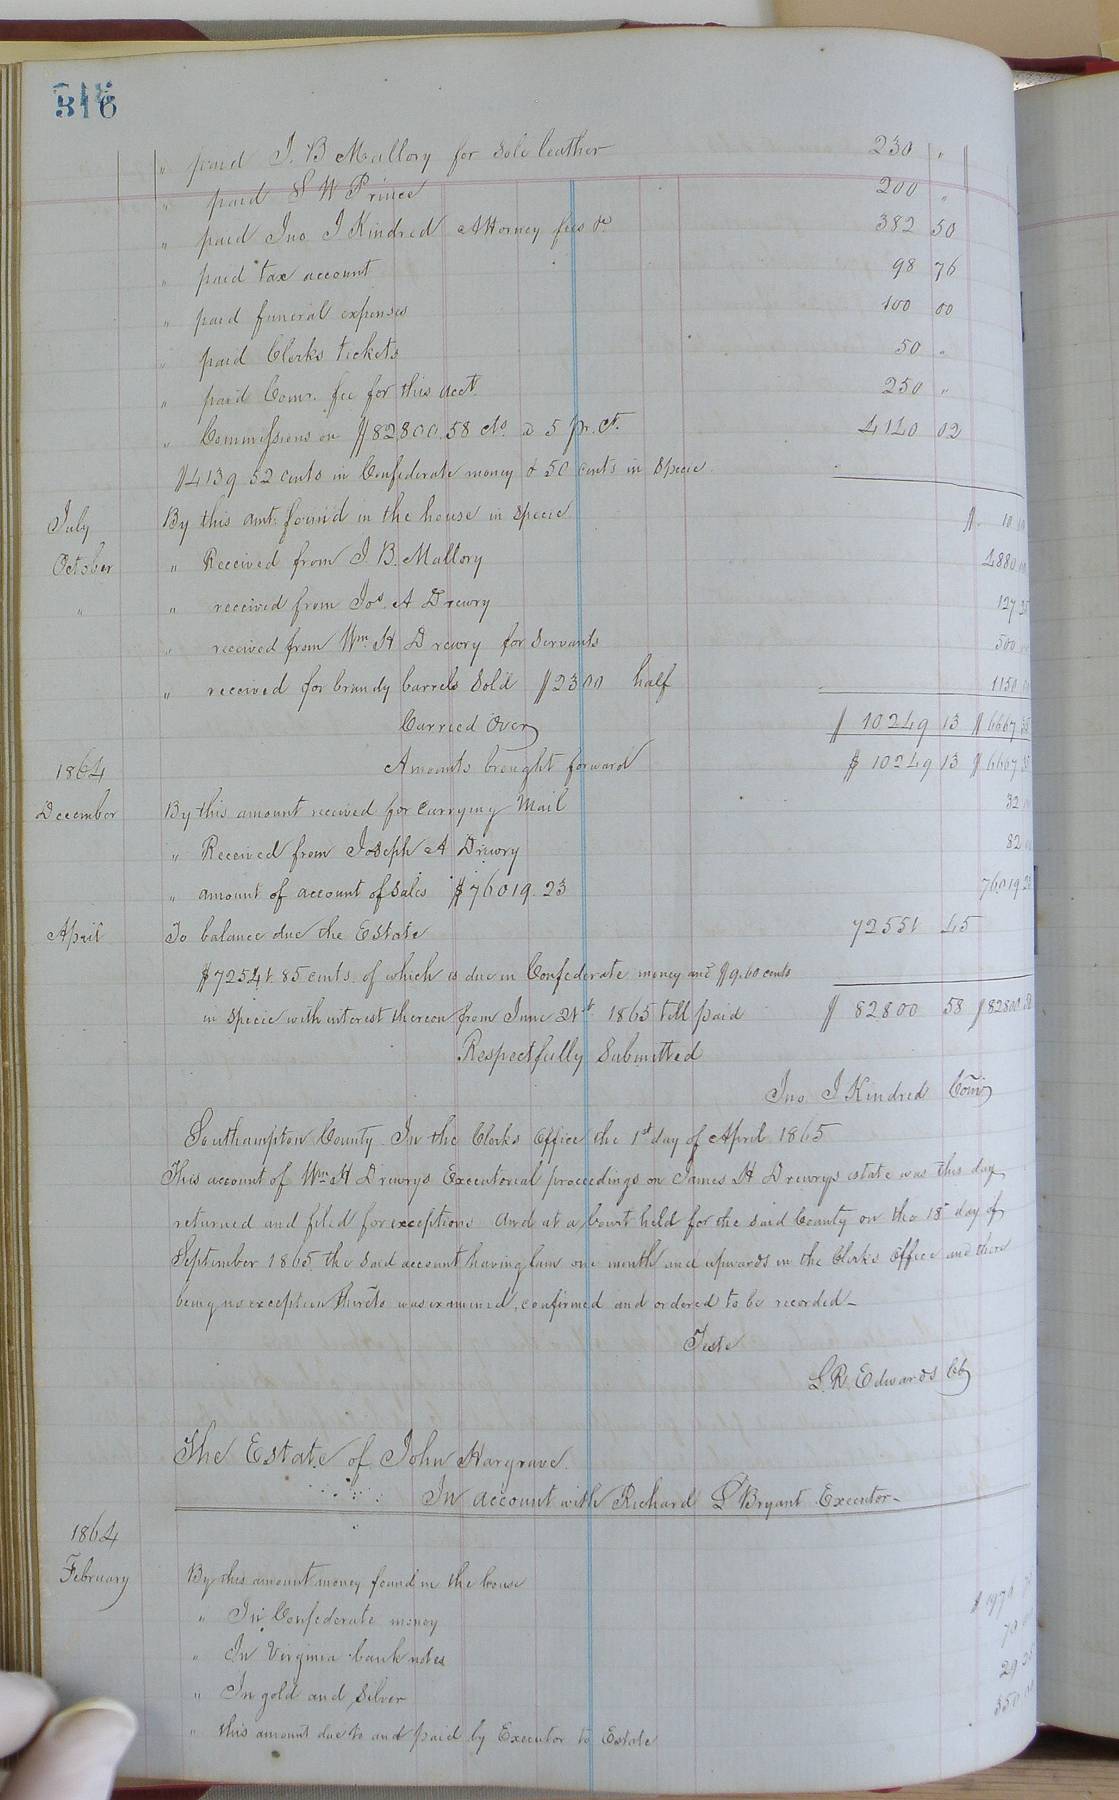 316
" paid J. B Mallory for Sole leather 230 "
" paid S W Prince 200 "
" paid Jno. J Kindred Attorney fees &c 382 50
" paid tax account 98 76
" paid funeral expenses 100 00
" paid Clerks tickets 50 "
" paid Comr. fee for this acct. 250 "
" Commissions on $82800.58 cts @ 5 pr. ct. 4140 02
$4139 52 cents in Confederate money & 50 cents in Specie
July By this amt. found in the house in Specie $ 10
October " Received from J. B. Mallory 4880
" " received from Jos. A Drewry 127
" received from Wm. H Drewry for Servants 500
" received for brandy barrels Sold $2300 half 1150
Carried Over $ 10249 13 $6667 35
1864 Amounts brought forward $ 10249 13 $6667
December By this amount received for carrying Mail 32
" Received from Joseph A Drewry 82
" amount of account of Sales $76019.23 76019 23
April To balance due the Estate 72551 45
$72541.85 cents. of which is due in Confederate money and $9.60 cents
in Specie with interest thereon from June 21st. 1865 till paid $ 82800 58 $82800 58
Respectfully Submitted
Jno. J Kindred Comr
Southampton County. In the Clerks Office the 1st day of April 1865
This account of Wm. H Drewrys Executorial proceedings on James H Drewrys estate was this day
returned and filed for exceptions And at a Court held for the said County on the 18th day of
September 1865 the Said account having lain one month and upwards in the Clerks Office and there
being no exception thereto was examined, confirmed and ordered to be recorded—
Teste
L. R. Edwards CC
The Estate of John Hargrave.
In account with Richard L Bryant Executor—
1864
February By this amount money found in the house
" In Confederate money $ 1976
" In Virginia bank notes 70
" In gold and Silver 29 25
" this amount due to and paid by Executor to Estate 350